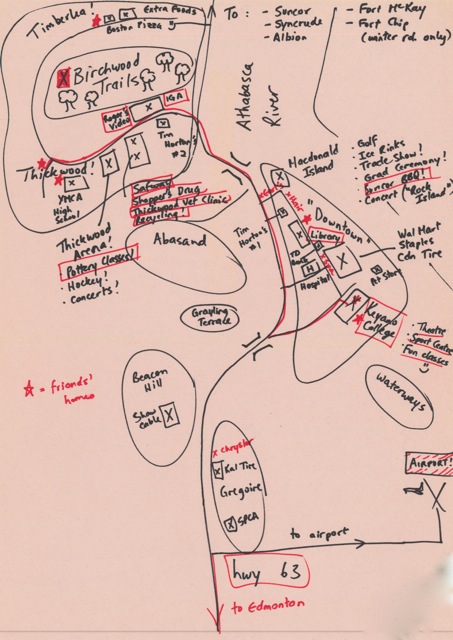 Timberlea!
Extra Foods
Boston Pizza
To :
- Suncor
- Syncrude
- Albion
- Fort McKay
- Fort Chip
(winter rd. only)
Birchwood
Trails
Roger's
Video
IGA
Tim
Horton's
#2
Athabasca
River
Thickwood!
YMCA
High
School
Safeway
Shopper's Drug
Thickwood Vet Clinic
Recycling!
Thickwood
Arena!
Pottery Classes!
· Hockey!
· Concerts!
Abasand
Macdonald
Island
· Golf
· Ice Rinks
· Trade Show!
· Grad Ceremony!
· Suncor BBQ!
· Concert ("Rock
Island")
x Hair
"Downtown"
Tim
Horton's #1
Library
TD
Bank
H
Hospital
Wal Mart
Staples
Cdn Tire
Art Store
Keyano
College
· Theatre
· Sport Centre
· Fun classes
Grayling
Terrace
= friends'
homes
Beacon
Hill
Shaw
Cable
Waterways
x chrysler
Kal Tire
Gregoire
SPCA
AIRPORT!
to airport
hwy 63
to Edmonton